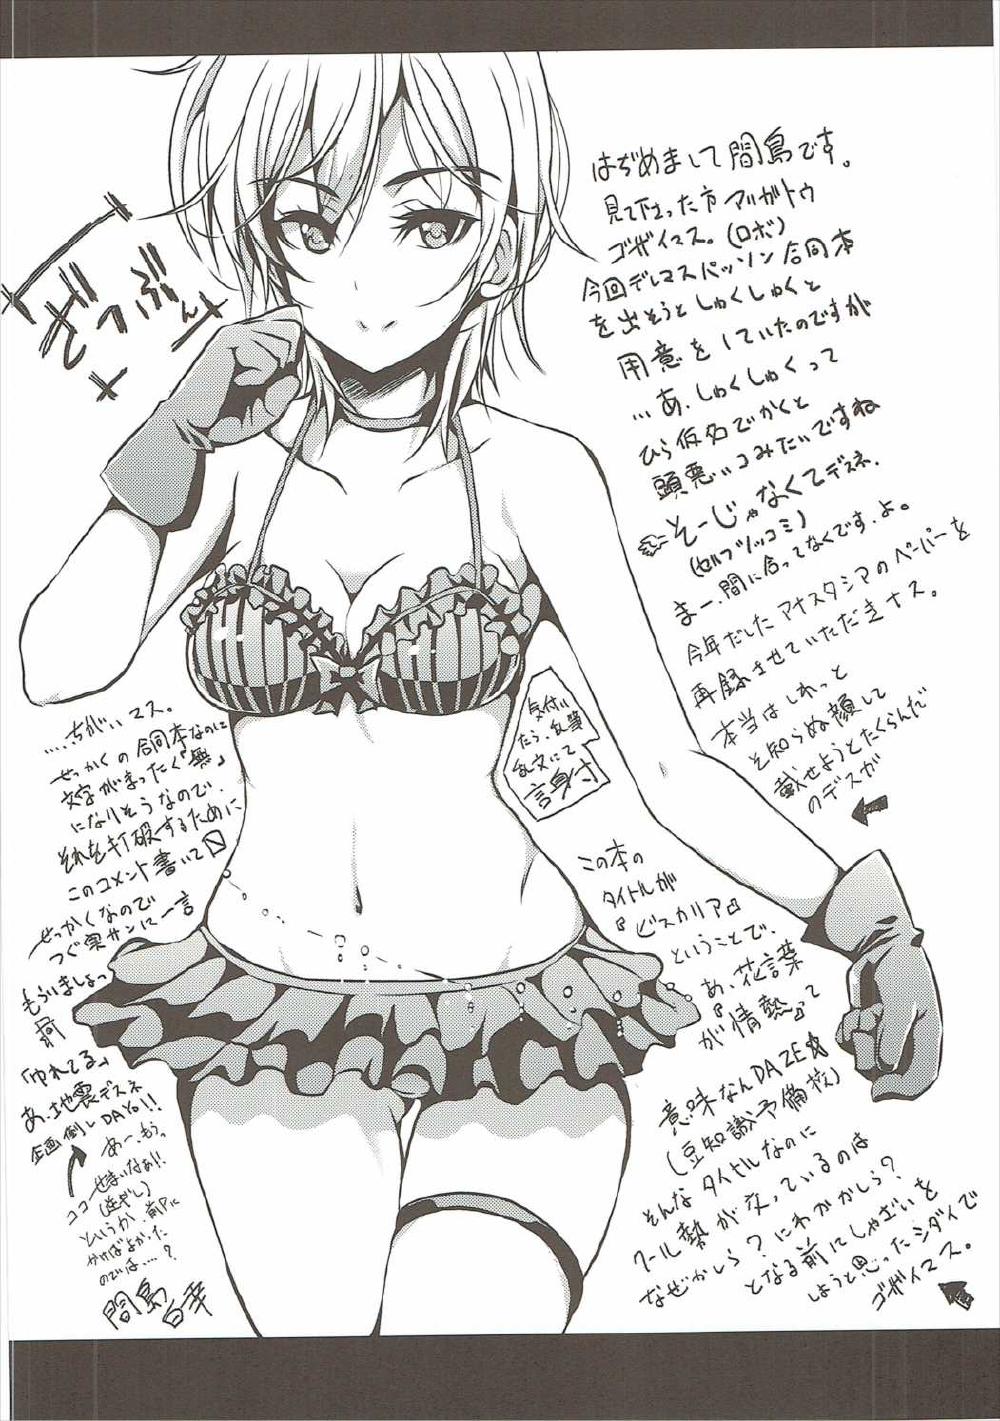 ざつぶん
はぢめまして間島です。
見て下さった方アリガトウ
ゴザイマス。(ロボ)
今回デレマスパッソン合同本
を出そうとしゅくしゅくと
用意をしていたのですが
…あ、しゅくしゅくって
ひら仮名でかくと
頭悪いコみたいですね
そーじゃなくてデスネ。
(セルフツッコミ)
まー、間に合ってなくです、よ。
今年だしたアナスタシアのペーパーを
再録させていただきナス。
本当はしれっと
そ知らぬ顔して
載せようとたくらんだ
のデスガ
……ちがいマス。
せっかくの合同本なのに
文字がまったく『無』
になりそうなので、
それを打破するために
このコメント書いて〼
せっかくなので
つぐ実サンに一言
もらいましょっ
「ゆれてる」
あ、地震デスネ
企画倒しDAYO!!
あー、もぅ、
ココせまいなぁ!!
(逆ギレ)
というか、前Pに
かけばよかった
のでは……?
間島
気付い
たら、乱筆
乱文にて
言身寸
この本の
タイトルが
『ビスカリア』
ということで、
あ、花言葉
が『情熱』って
意味なんDAZE☆
(豆知識予備校)
そんなタイトルなのに
クール勢が交っているのは
なぜかしら?にわかかしら?
となる前にしゃざいを
しようと思ったシダイで
ゴザイマス。